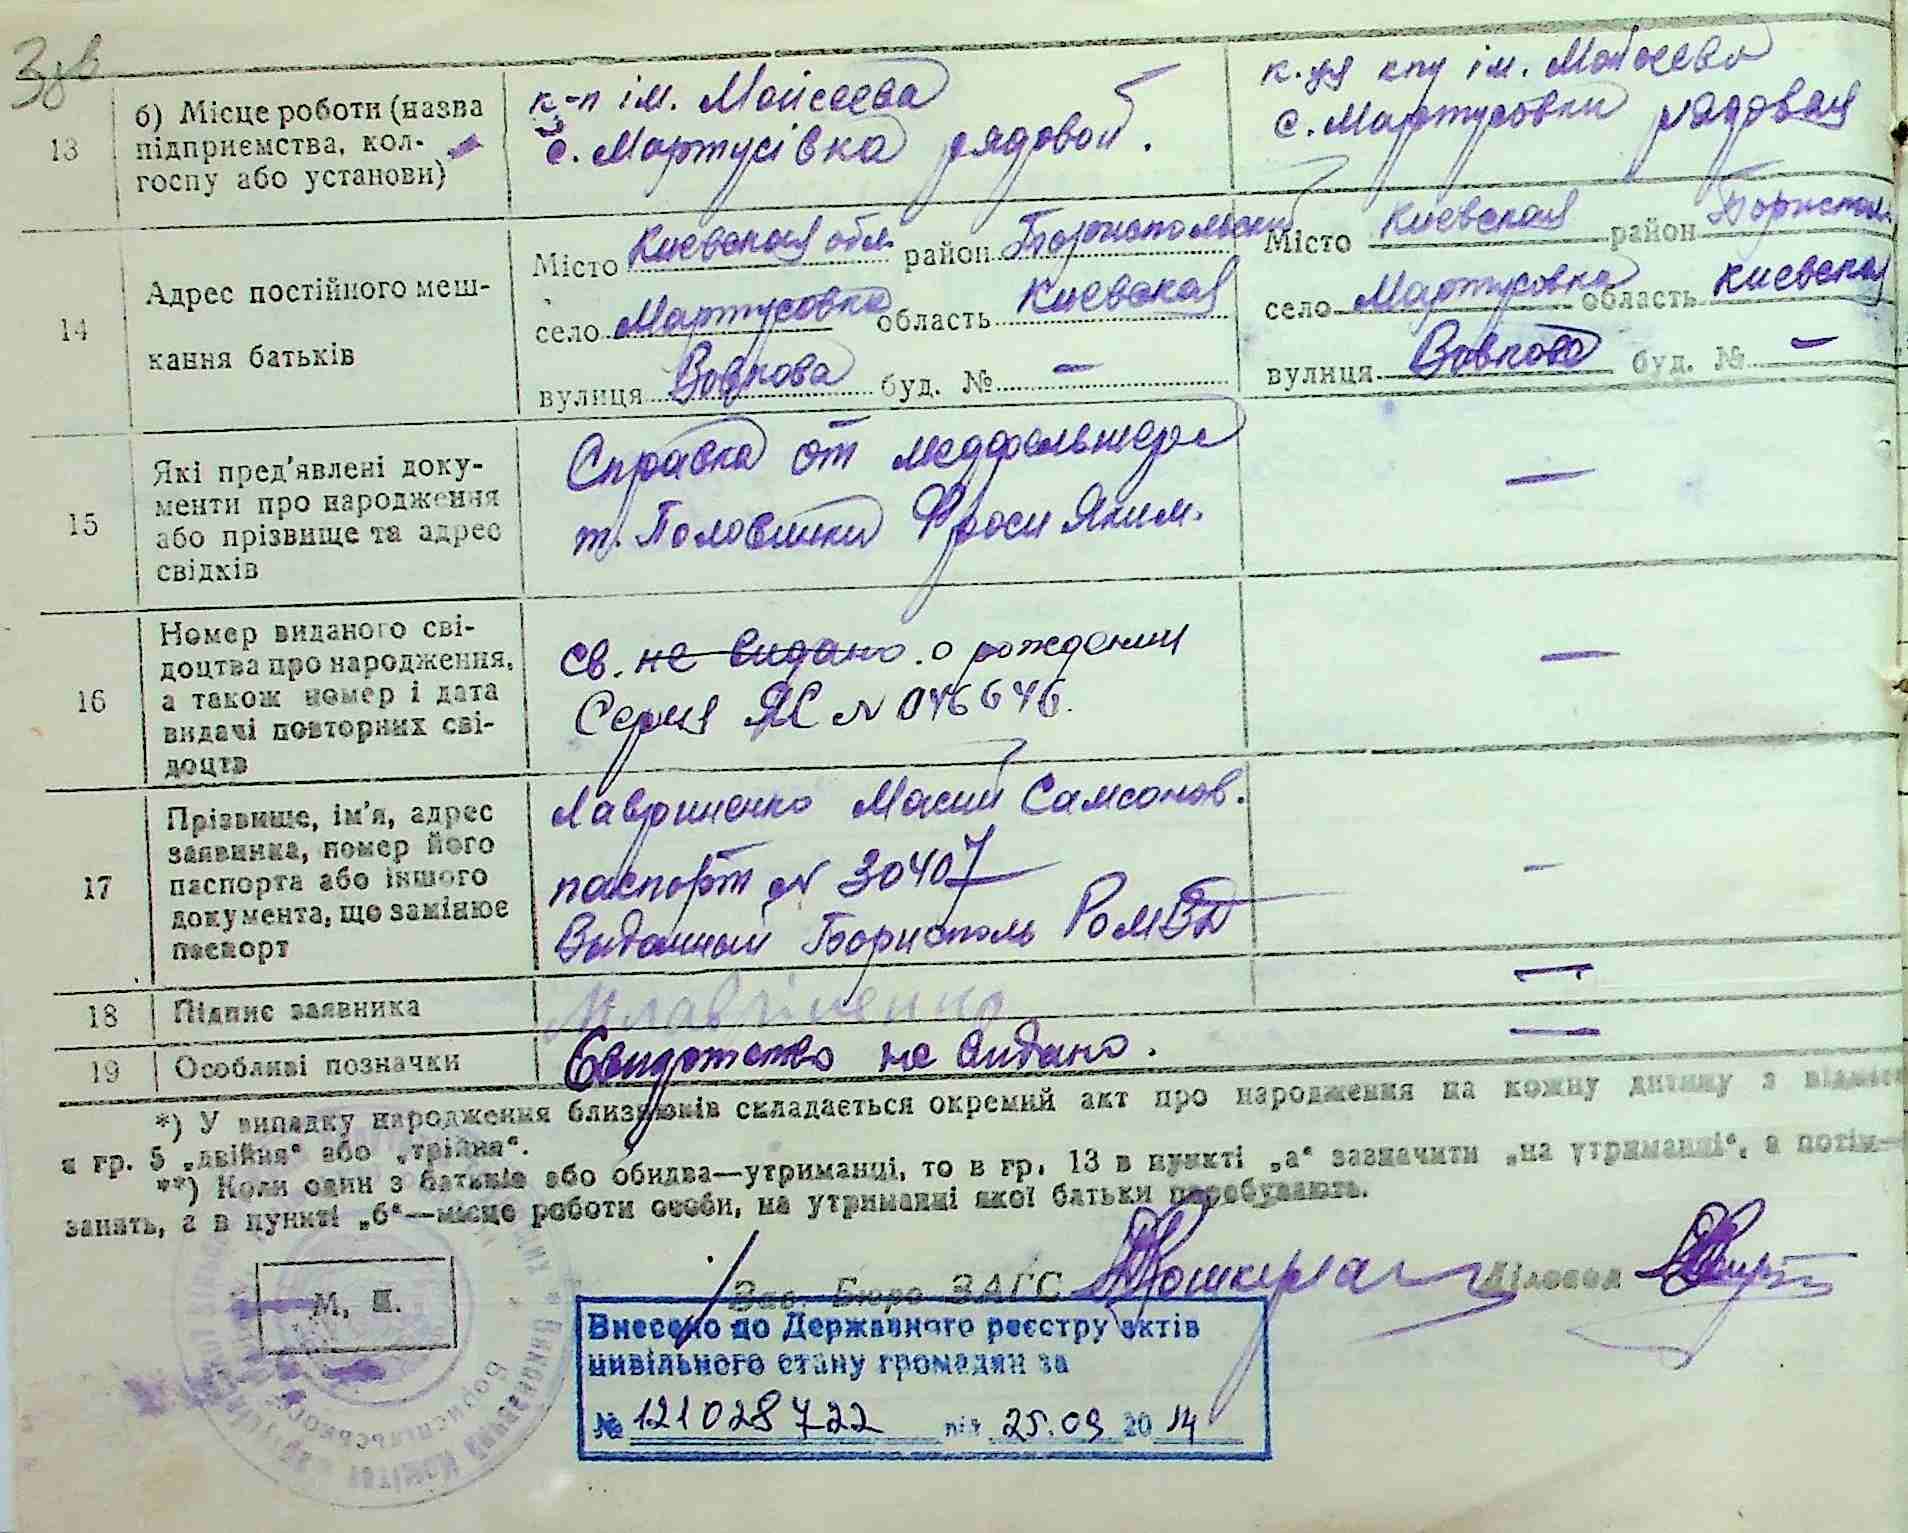 13
б) Місце роботи (назва
підприємства, кол-
госпу або установи)
к-п ім. Мойсеєва
с. Мартусівка рядовой.
ім. Мойсеева
с. Мартусовки рядовая
14
Адрес постійного меш-
кання батьків
Місто Киевская обл. район Бориспольский
село Мартусовка область Киевская
вулиця Вовкова буд. № —
Місто Киевская район Борисполь
село Мартусовка область Киевская
вулиця Вовкова буд. № —
15
Які пред'явлені доку-
менти про народження
або прізвище та адрес
свідків
Справка от медфельшера
т. Половинки Фроси Яким.
—
16
Номер виданого сві-
доцтва про народження,
а також номер і дата
видачі повторних сві-
доцтв
св. не видано. о рождении
Серия ЯС № 046646.
—
17
Прізвище, ім'я, адрес
заявника, номер його
паспорта або іншого
документа, що замінює
паспорт
Лавриненко Масий Самсонов.
паспорт № 30407
Выданный Борисполь РоМВД
—
18
Підпис заявника
МЛавріненко
—
19
Особливі позначки
Свидотство не видано.
—
*) У випадку народження близнюків складається окремий акт про народження на кожну дитину з
в гр. 5 „двійня“ або „трійня“.
**) Коли один з батьків або обидва—утриманці, то в гр. 13 в пункті „а“ зазначити „на утриманні“, а потім—
занять, а в пункті „б“—місце роботи особи, на утриманні якої батьки перебувають.
М. П.
Зав. Бюро ЗАГС
Діловод
Внесено до Державного реєстру актів
цивільного стану громадян за
№ 121028722 від 25.09 2014